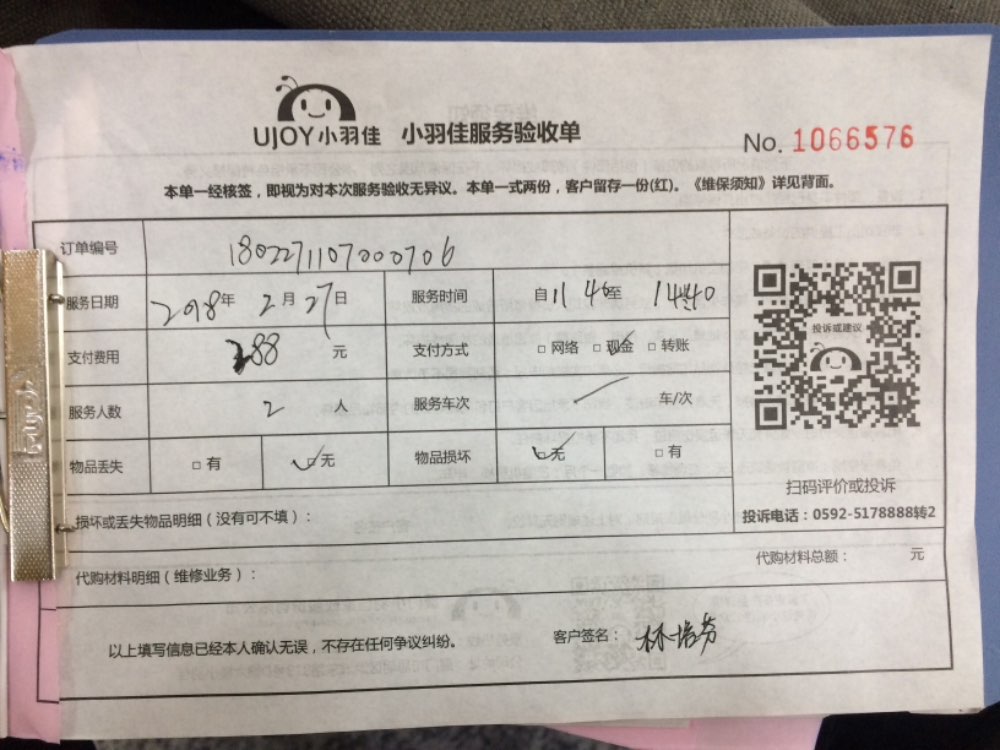 UJOY小羽佳 小羽佳服务验收单
No. 1066576
本单一经核签，即视为对本次服务验收无异议。本单一式两份，客户留存一份(红)。《维保须知》详见背面。
订单编号 1802271107000706
服务日期 2018年 2月 27日 服务时间 自11 40至 1440
支付费用 288 元 支付方式 □ 网络 □ 现金 □ 转账
服务人数 2 人 服务车次 车/次
物品丢失 □ 有 □ 无 物品损坏 □ 无 □ 有
投诉或建议
扫码评价或投诉
投诉电话：0592-5178888转2
损坏或丢失物品明细（没有可不填）：
代购材料总额： 元
代购材料明细（维修业务）：
以上填写信息已经本人确认无误，不存在任何争议纠纷。 客户签名： 林培芬